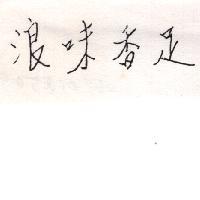 浪味香足